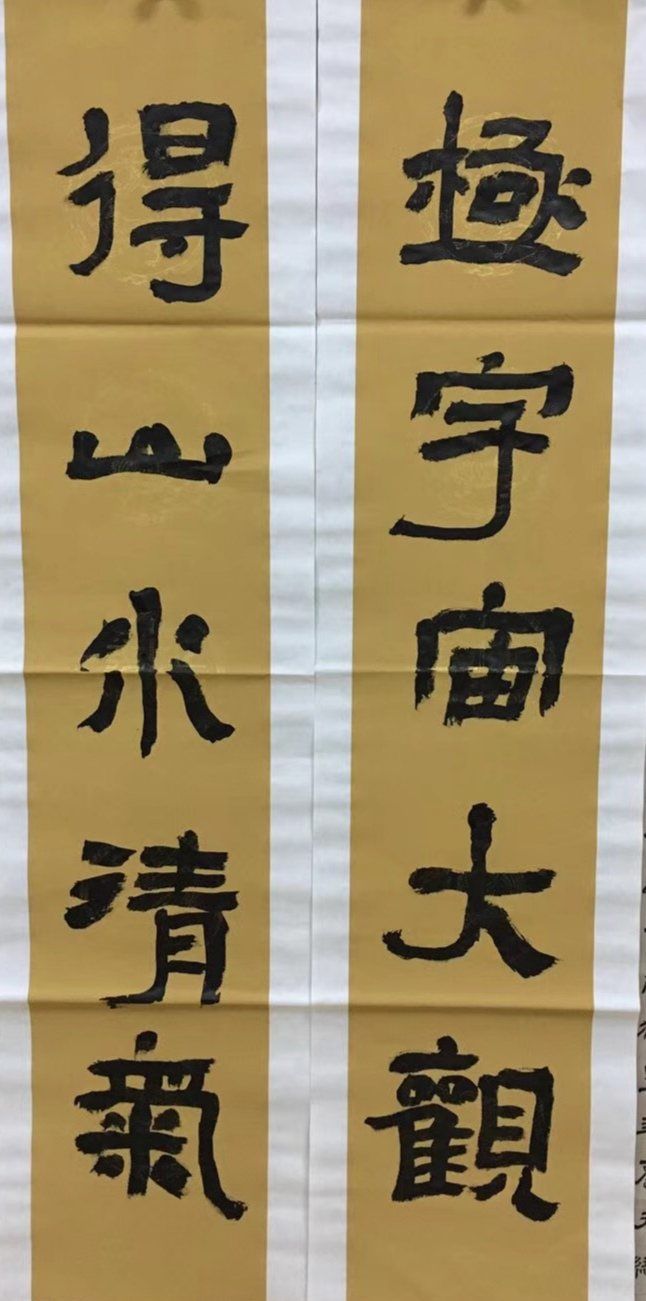 極宇宙大觀
得山水清氣